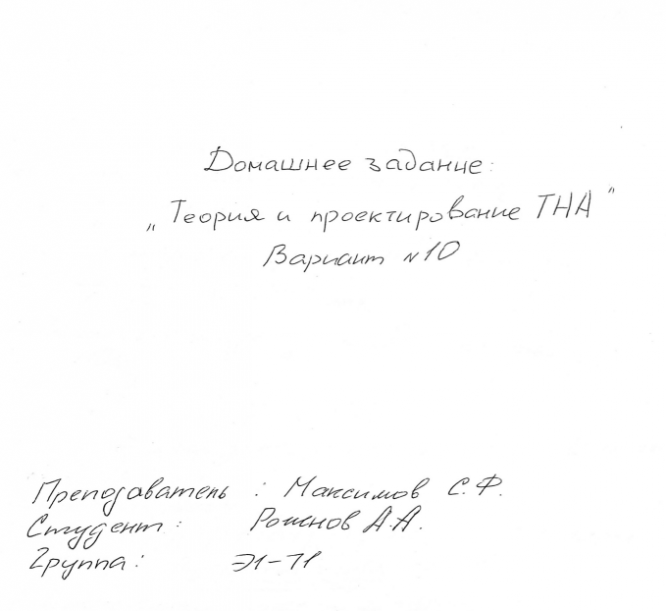 Домашнее задание:
„Теория и проектирование ТНА"
Вариант №10
Преподаватель : Максимов С.Ф.
Студент : А.А.
Группа : Э1-71